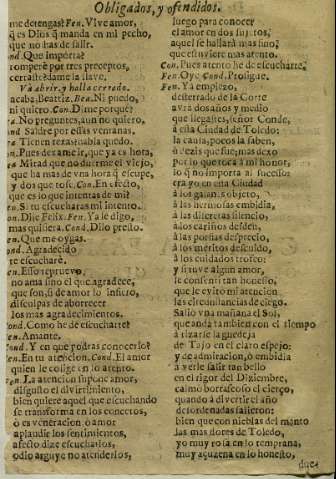 Obligados, y ofendidos.
me detengas? Fen. Vive amor,
q̃ es Dios q̃ manda en mi pecho,
que no has de salir.
ond. Que importa?
romperè por tres preceptos,
cerraste? dame la llave.
Va à abrir, y halla cerrado.
acaba, Beatriz. Bea. Ni puedo,
ni quiero. Con. Dime porquè?
ea. No preguntes, aun no quiero.
ond. Saldrè por essas ventanas.
ea. Tienen rexas: habla quedo.
en. Pues dexame ir, que ya es hora,
ea. Mirad no os duerme el viejo,
que ha mas de vna hora q̃ escupe,
y dos que tose. Con. En efecto,
que es lo que intentas de mi?
en. Si tu escuchàras mi intento.
on. Dile Felix. Fen. Ya le digo,
mas quisiera. Cond. Dilo presto.
en. Que me oygas.
ond. Agradecido
te escucharè.
en. Esso repruevo,
no ama fino el que agradece,
que son, si de amor lo infiero,
disculpas de aborrecer
los mas agradecimientos.
Cond. Como he de escucharte?
en. Amante.
ond. Y en què podràs conocerlo?
Fen. En tu atencion. Cond. El amor
quien le colige en lo atento.
en. La atencion supone amor,
disgusto el divirtimiento,
bien quiere aquel que escuchando
se transforma en los concetos,
ò es veneracion, ò amor
aplaudir los sentimientos,
afecto dize escucharlos,
odio arguye no atenderlos,
luego para conocer
el amor en dos sujetos,
aquel se hallarà mas fino,
que estuviere mas atento.
Con. Pues atento he de escucharte.
Fen. Oye Cond. Prosigue.
Fen. Ya empiezo,
desterrado de la Corte
avrà dos años, y medio
que llegastes, señor Conde,
à esta Ciudad de Toledo:
la causa, pocos la saben,
ò dezis que fue, mas dexo
por lo que toca à mi honor,
lo q̃ no importa al sucesso:
era yo en esta Ciudad
à los galanes objeto,
à las hermosas embidia,
à las discretas silencio,
à los cariños desdèn,
à las porfias desprecio,
à los meritos descuido,
à los cuidados trofeo:
y si tuve algun amor,
le consentì tan honesto,
que le evitò mi atencion
las circunstancias de ciego.
Saliò vna mañana el Sol,
que anda tambien con el tiempo
à rizarse la guedeja
de Tajo en el claro espejo:
y de admiracion, ò embidia
à verle salir tan bello
en el rigor del Diziembre,
calmò borrascoso el cierço,
quando à divertir el año
desordenadas salieron:
bien que con nieblas del manto
las mas flores de Toledo,
yo muy rosa en lo temprana,
muy açuzena en lo honesto,